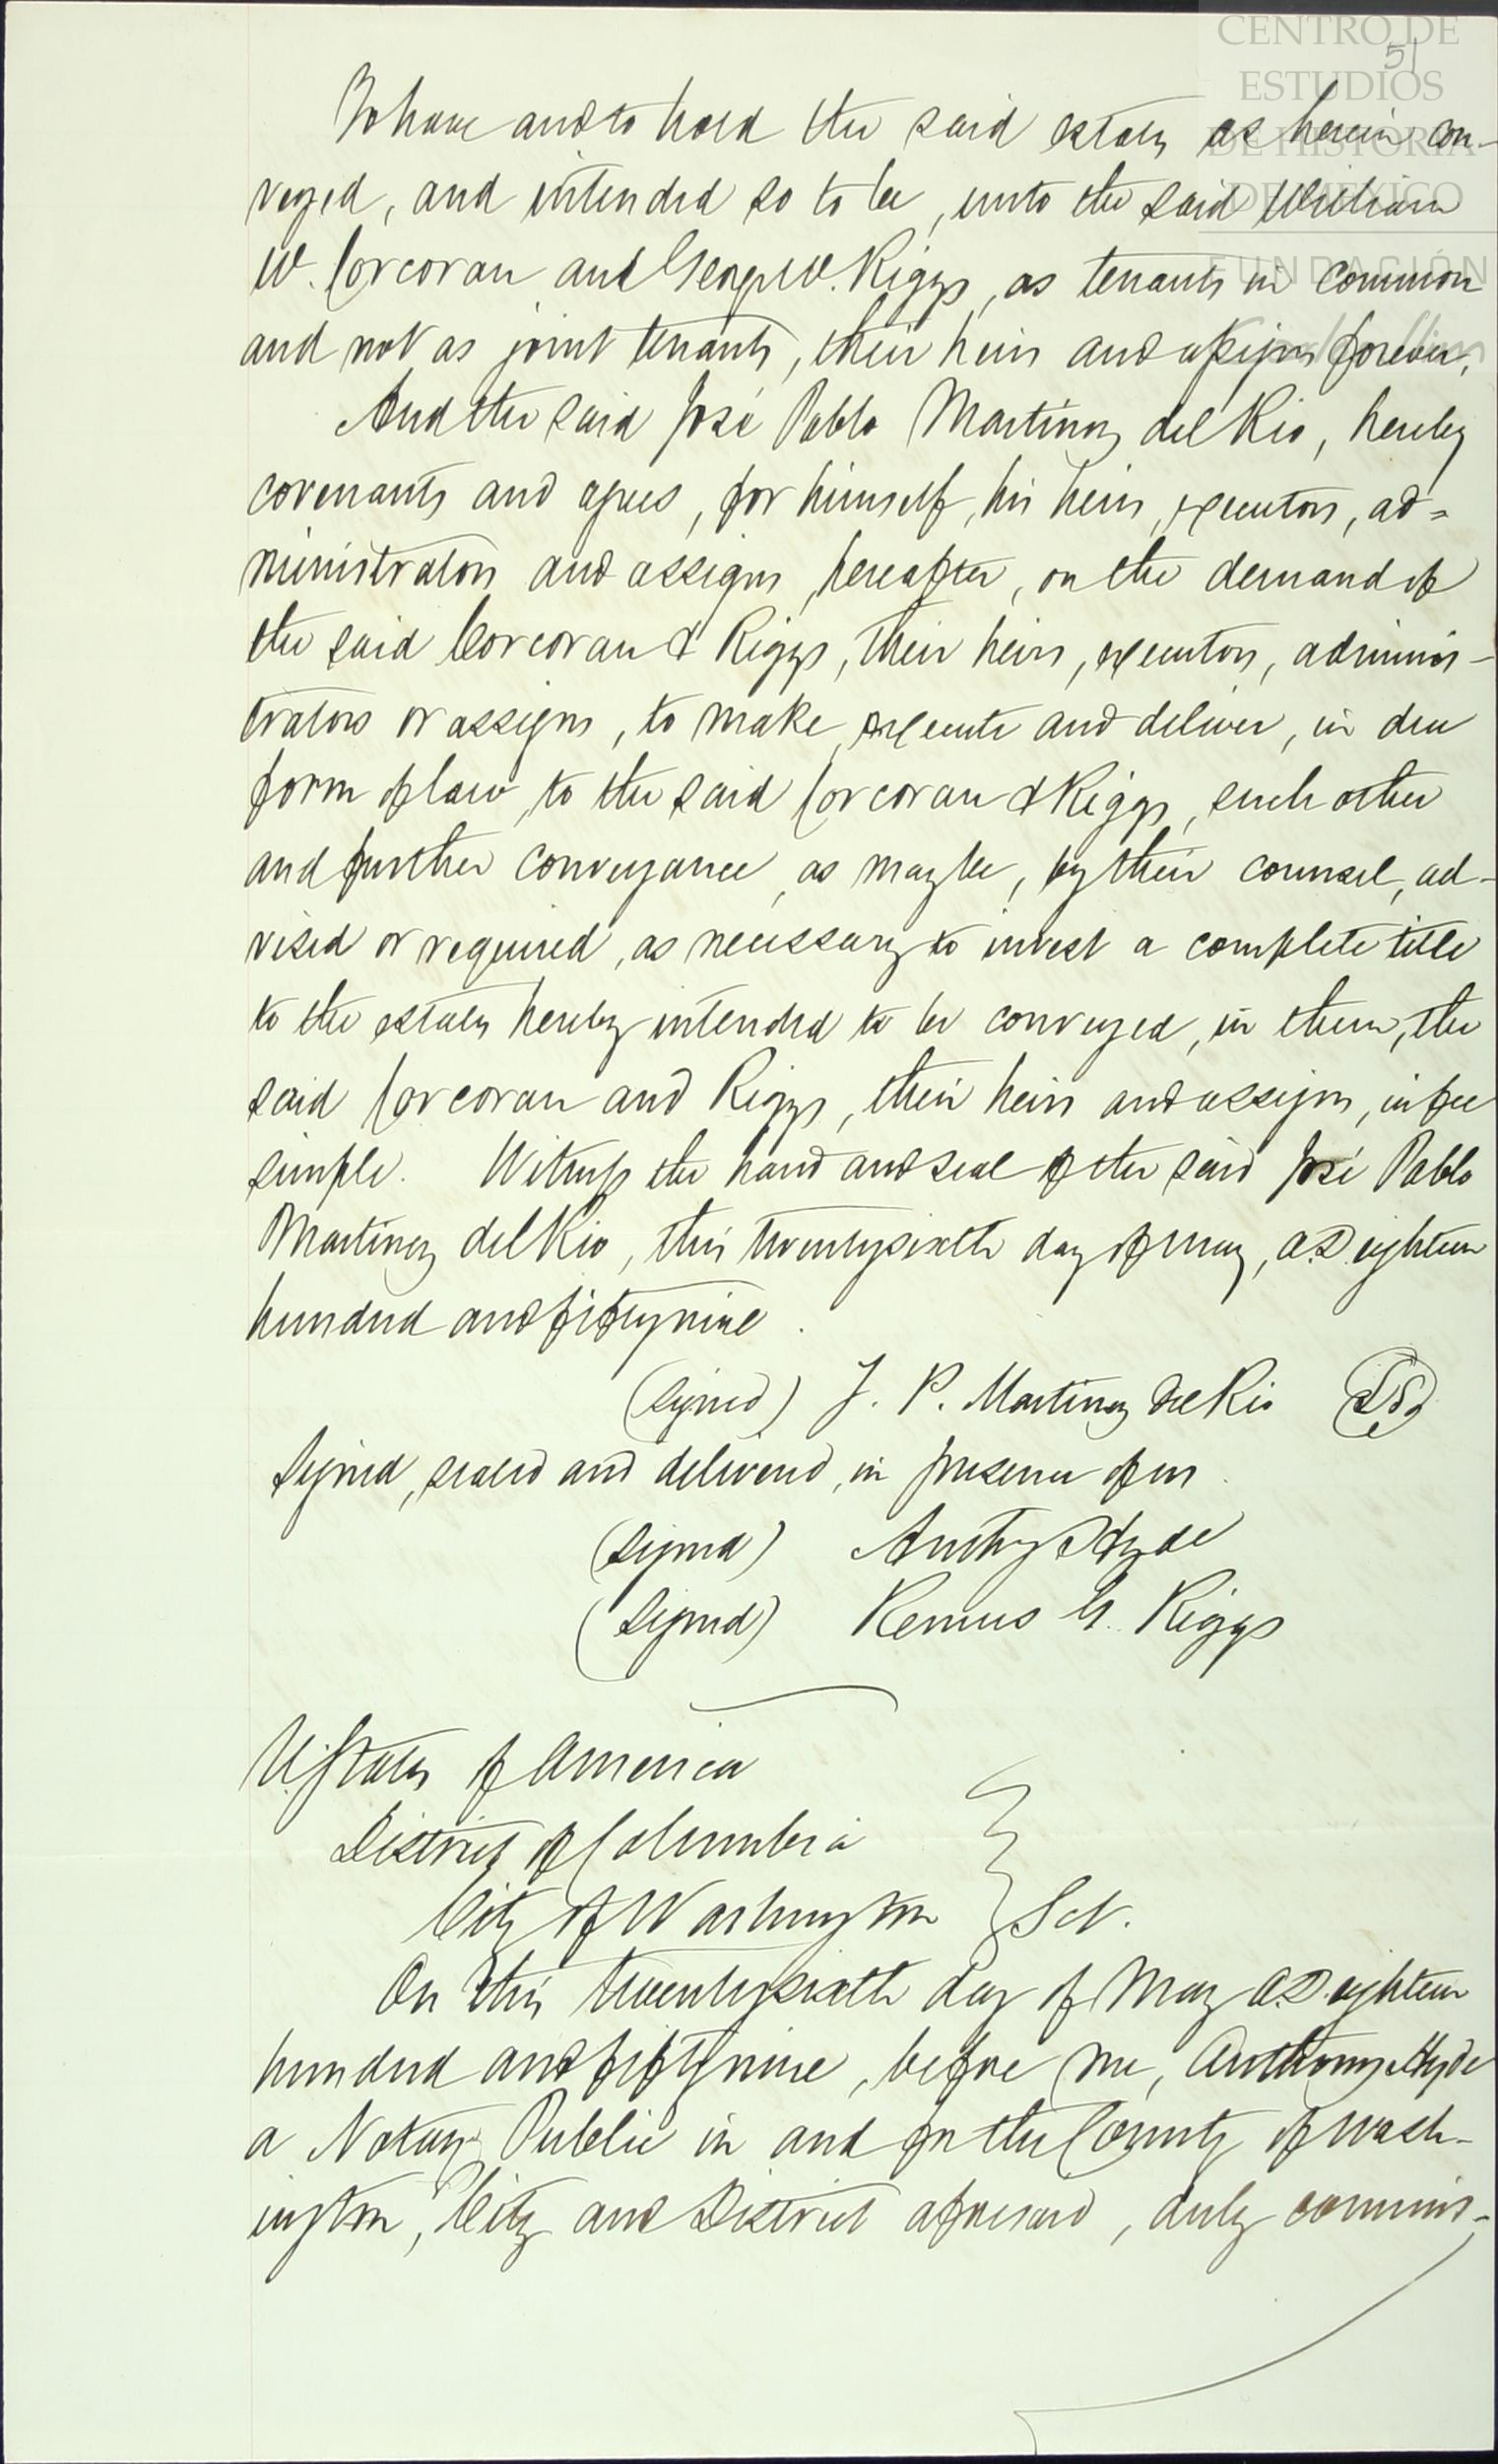 CENTRO DE
51
ESTUDIOS
DE HISTORIA
DE MEXICO
FUNDACIÓN
To have and to hold the said estate, as herein con-
veyed, and intended so to be, unto the said William
W. Corcoran and George W. Riggs, as tenants in common
and not as joint tenants, their heirs and assigns forever.
And the said José Pablo Martinez del Rio, hereby
covenants and agrees, for himself, his heirs, executors, ad=
ministrators and assigns, hereafter, on the demand of
the said Corcoran & Riggs, their heirs, executors, adminis-
trators or assigns, to make, execute and deliver, in due
form of law, to the said Corcoran & Riggs, such other
and further conveyance, as may be, by their counsel, ad-
vised or required, as necessary to invest a complete title
to the estates hereby intended to be conveyed, in them, the
said Corcoran and Riggs, their heirs and assigns, in fee
simple. Witness the hand and seal of the said José Pablo
Martinez del Rio, this twenty sixth day of May, A.D. eighteen
hundred and fifty nine.
(signed) J. P. Martinez del Rio LS
Signed, sealed and delivered, in presence of us.
(signed) Anthy Hyde
(signed) Remus G. Riggs
U. States of America
District of Columbia
City of Washington } Sct.
On this twenty sixth day of May A.D. eighteen
hundred and fifty nine, before me, Anthony Hyde
a Notary Public in and for the County of Wash-
ington, City and District aforesaid, duly commis-